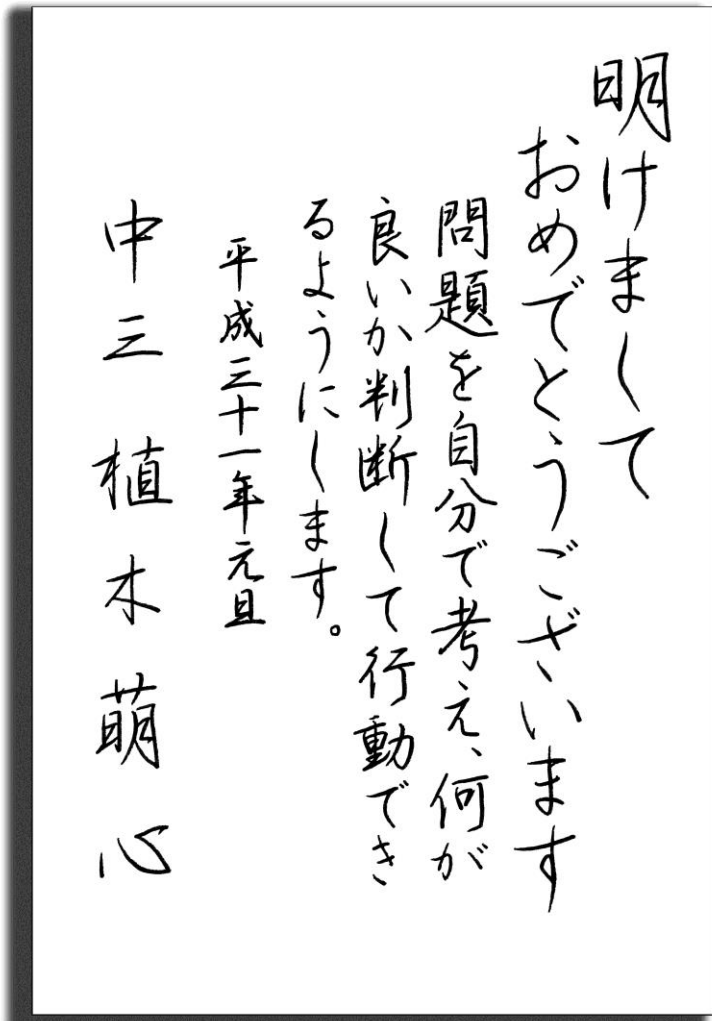 明けまして
おめでとうございます
問題を自分で考え、何が
良いか判断して行動でき
るようにします。
平成三十一年元旦
中三 植木萌心